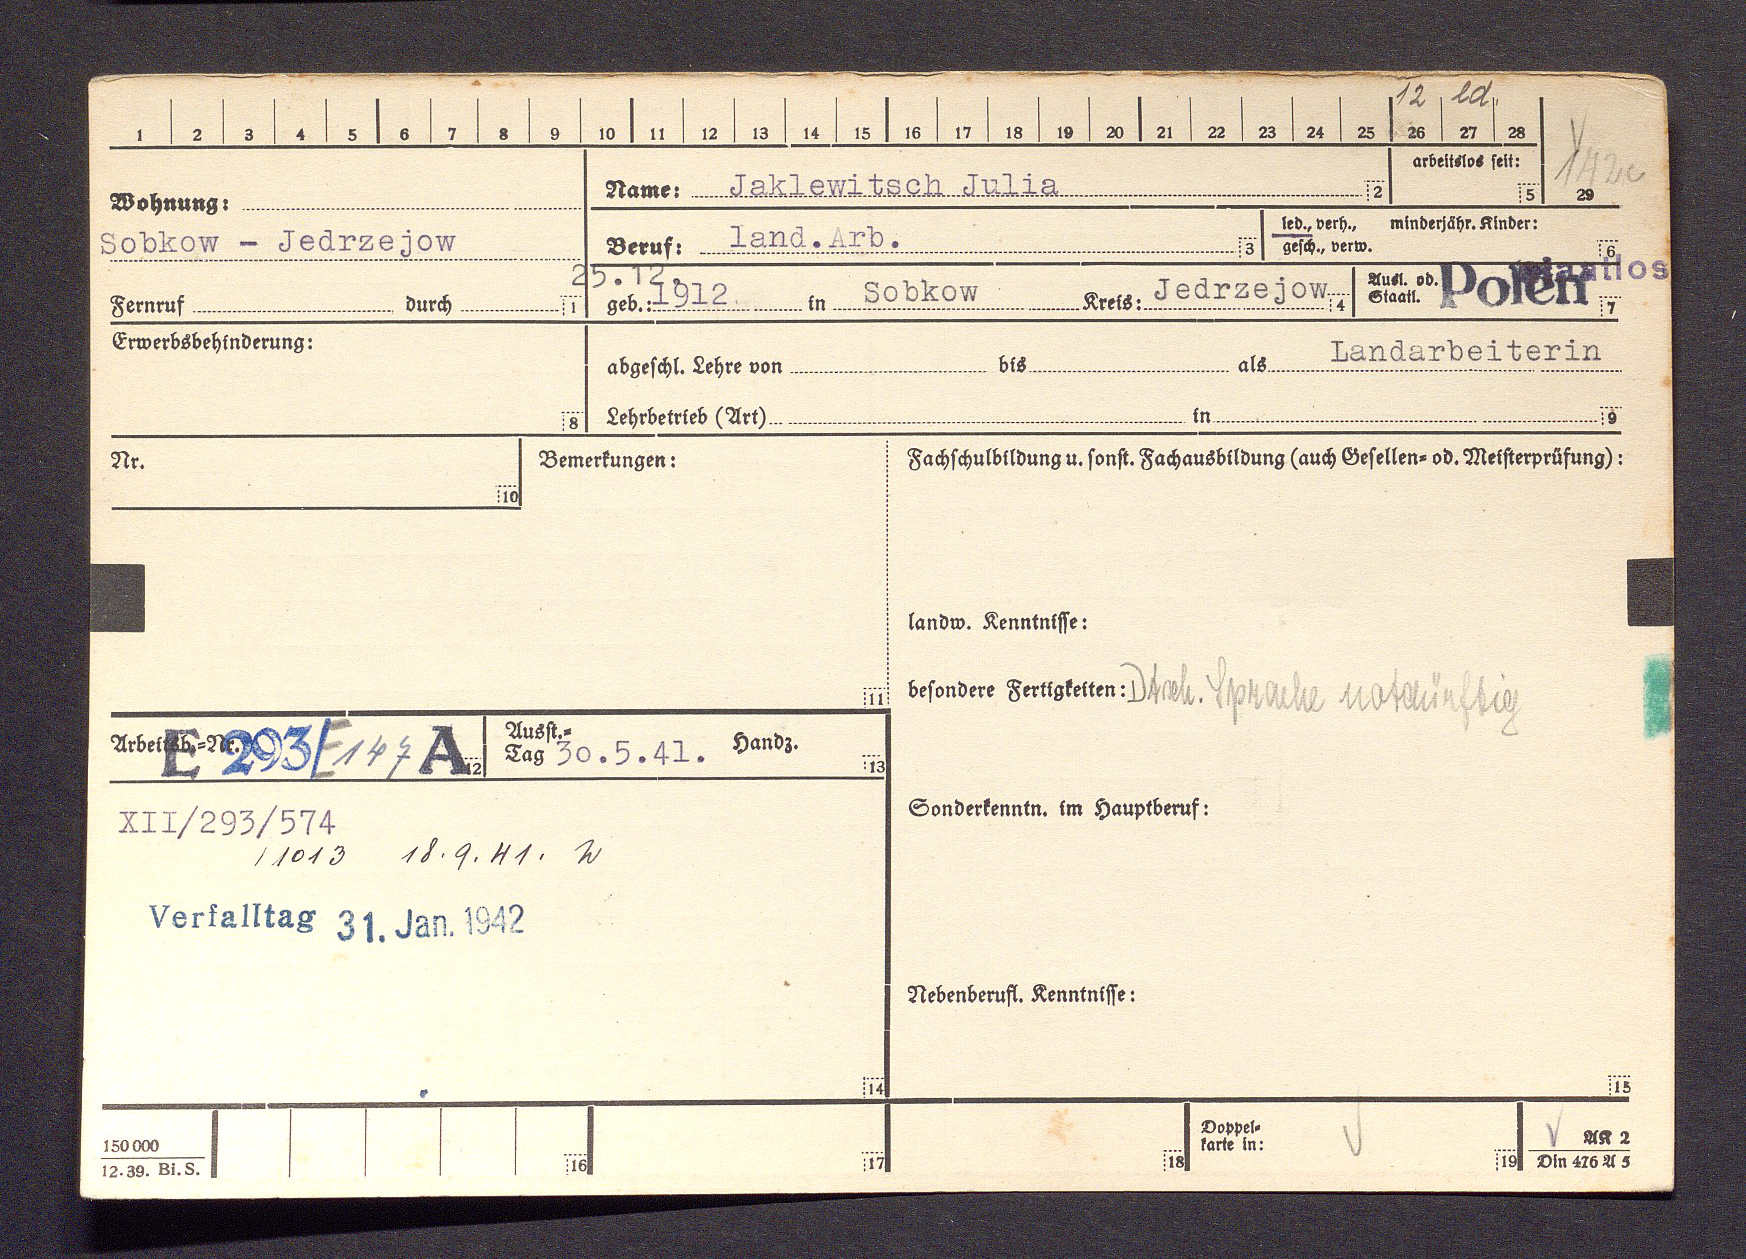 12 led.
1 2 3 4 5 6 7 8 9 10 11 12 13 14 15 16 17 18 19 20 21 22 23 24 25 26 27 28
29
Wohnung:
Sobkow - Jedrzejow
Fernruf durch 1
Name: Jaklewitsch Julia 2
arbeitslos seit: 5
Beruf: land.Arb. 3
led., verh., minderjähr. Kinder:
gesch., verw. 6
25.12.
geb.: 1912 in Sobkow Kreis: Jedrzejow 4
Ausl. od.
Staatl. Polen staatlos 7
Erwerbsbehinderung: 8
abgeschl. Lehre von bis als Landarbeiterin
Lehrbetrieb (Art) in 9
Nr. 10
Bemerkungen: 11
Fachschulbildung u. sonst. Fachausbildung (auch Gesellen- od. Meisterprüfung):
landw. Kenntnisse:
besondere Fertigkeiten: Dtsch. Sprache notdürftig
Arbeitsb.-Nr. E 293/E 147 A 12
Ausst.-
Tag 30.5.41. Handz. 13
XII/293/574
11013 18.9.41.
Verfalltag 31. Jan. 1942
14
Sonderkenntn. im Hauptberuf:
Nebenberufl. Kenntnisse:
15
150 000
12. 39. Bi. S.
16 17 18
Doppel-
karte in: 19
AK 2
Din 476 A 5